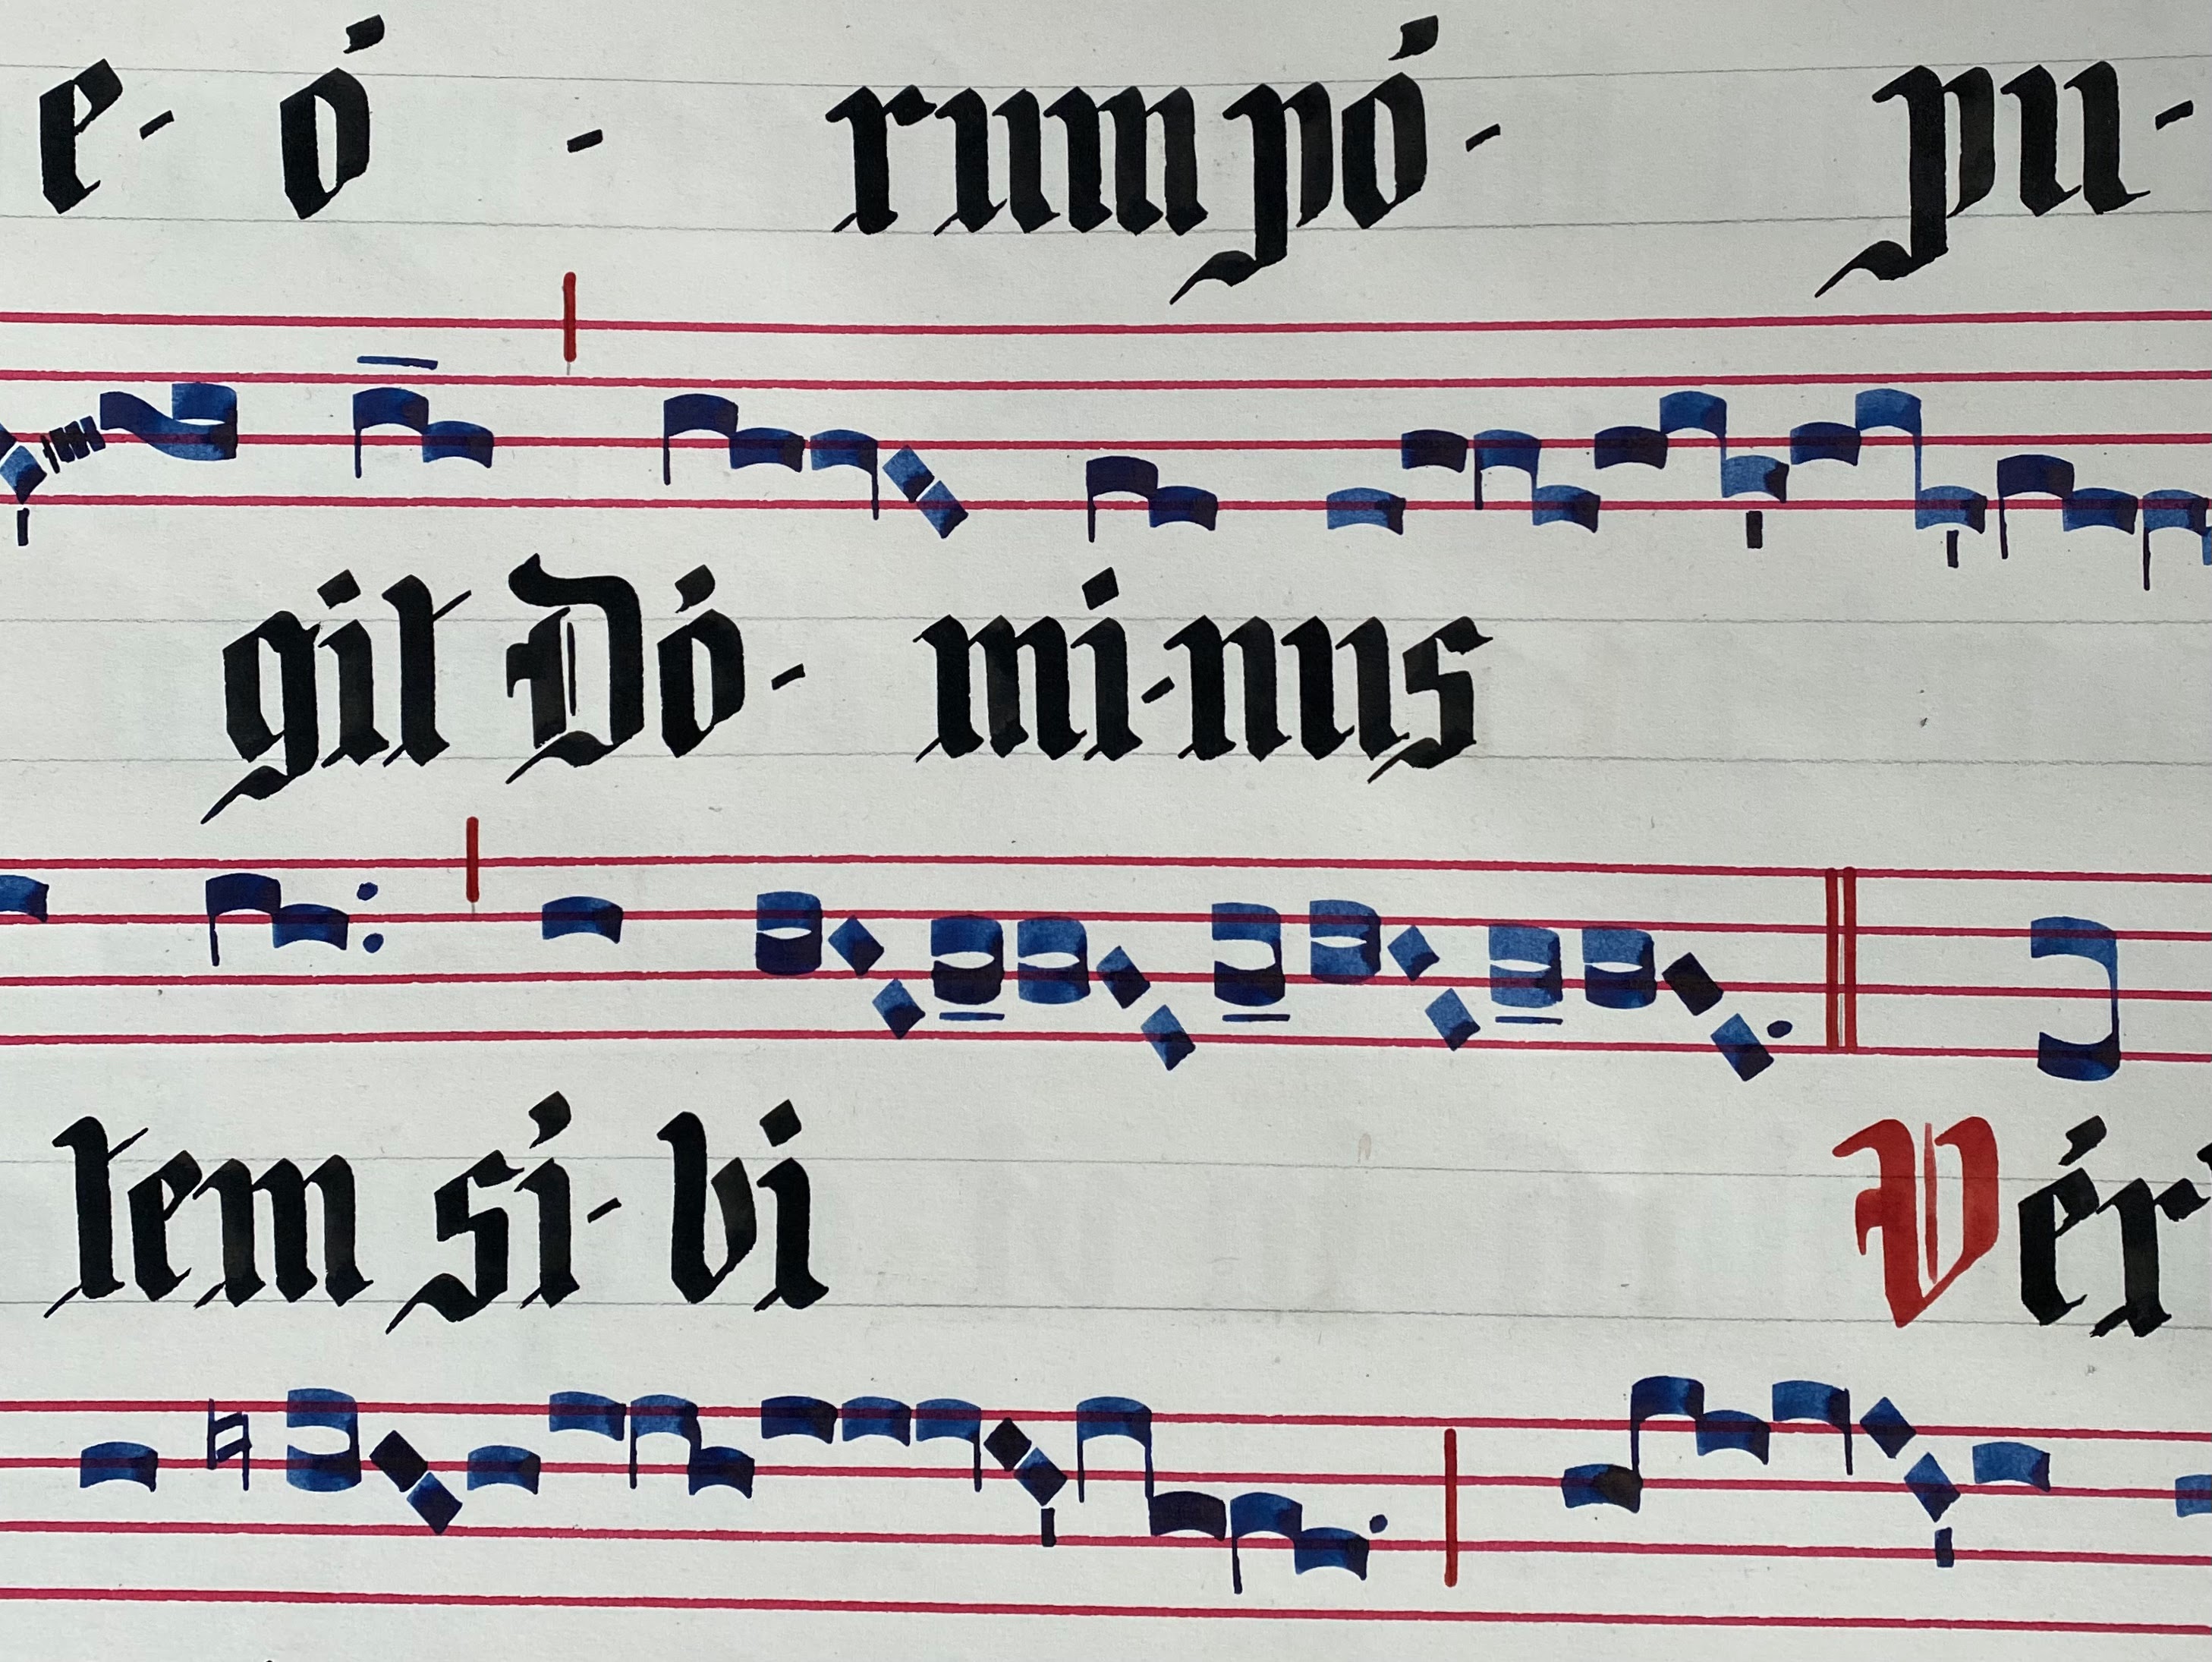 e- ó - rum pó- pu-
git Dó- mi-nus
tem sí- bi Vér